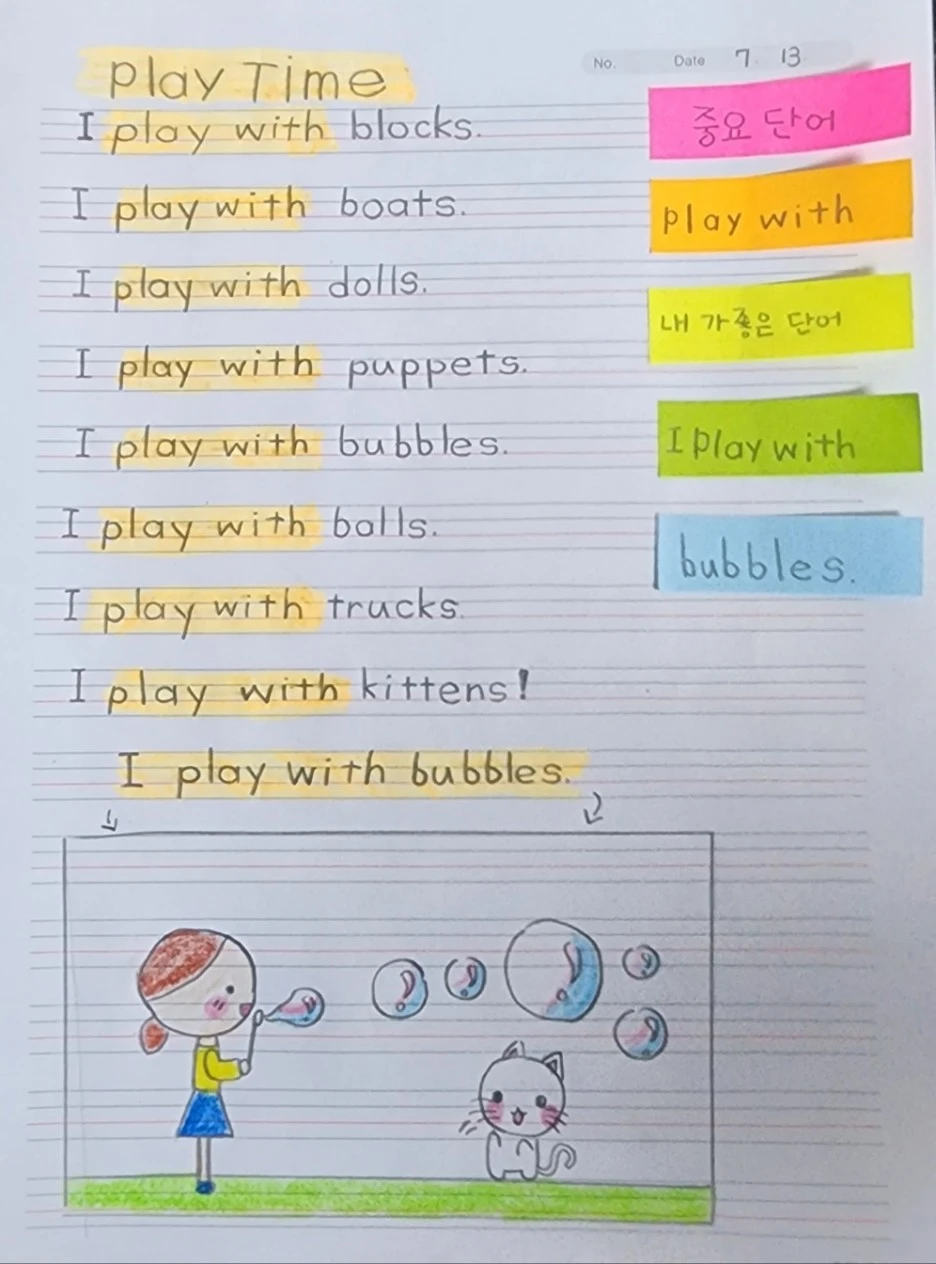 No. Date 7. 13
Play Time
I play with blocks.
I play with boats.
I play with dolls.
I play with puppets.
I play with bubbles.
I play with balls.
I play with trucks.
I play with kittens!
I play with bubbles.
중요 단어
play with
내가 좋은 단어
I Play with
bubbles.